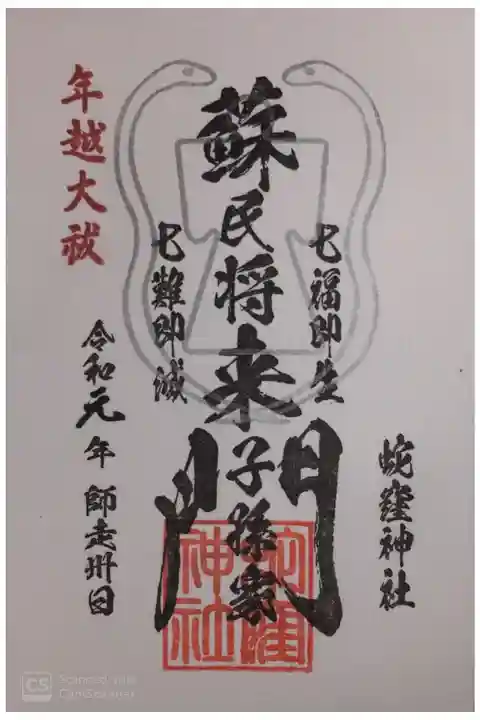 蛇窪神社
七福即生
蘇民将来子孫家門
七難即滅
年越大祓
令和元年師走卅日
神社
CS
Scanned with
CamScanner